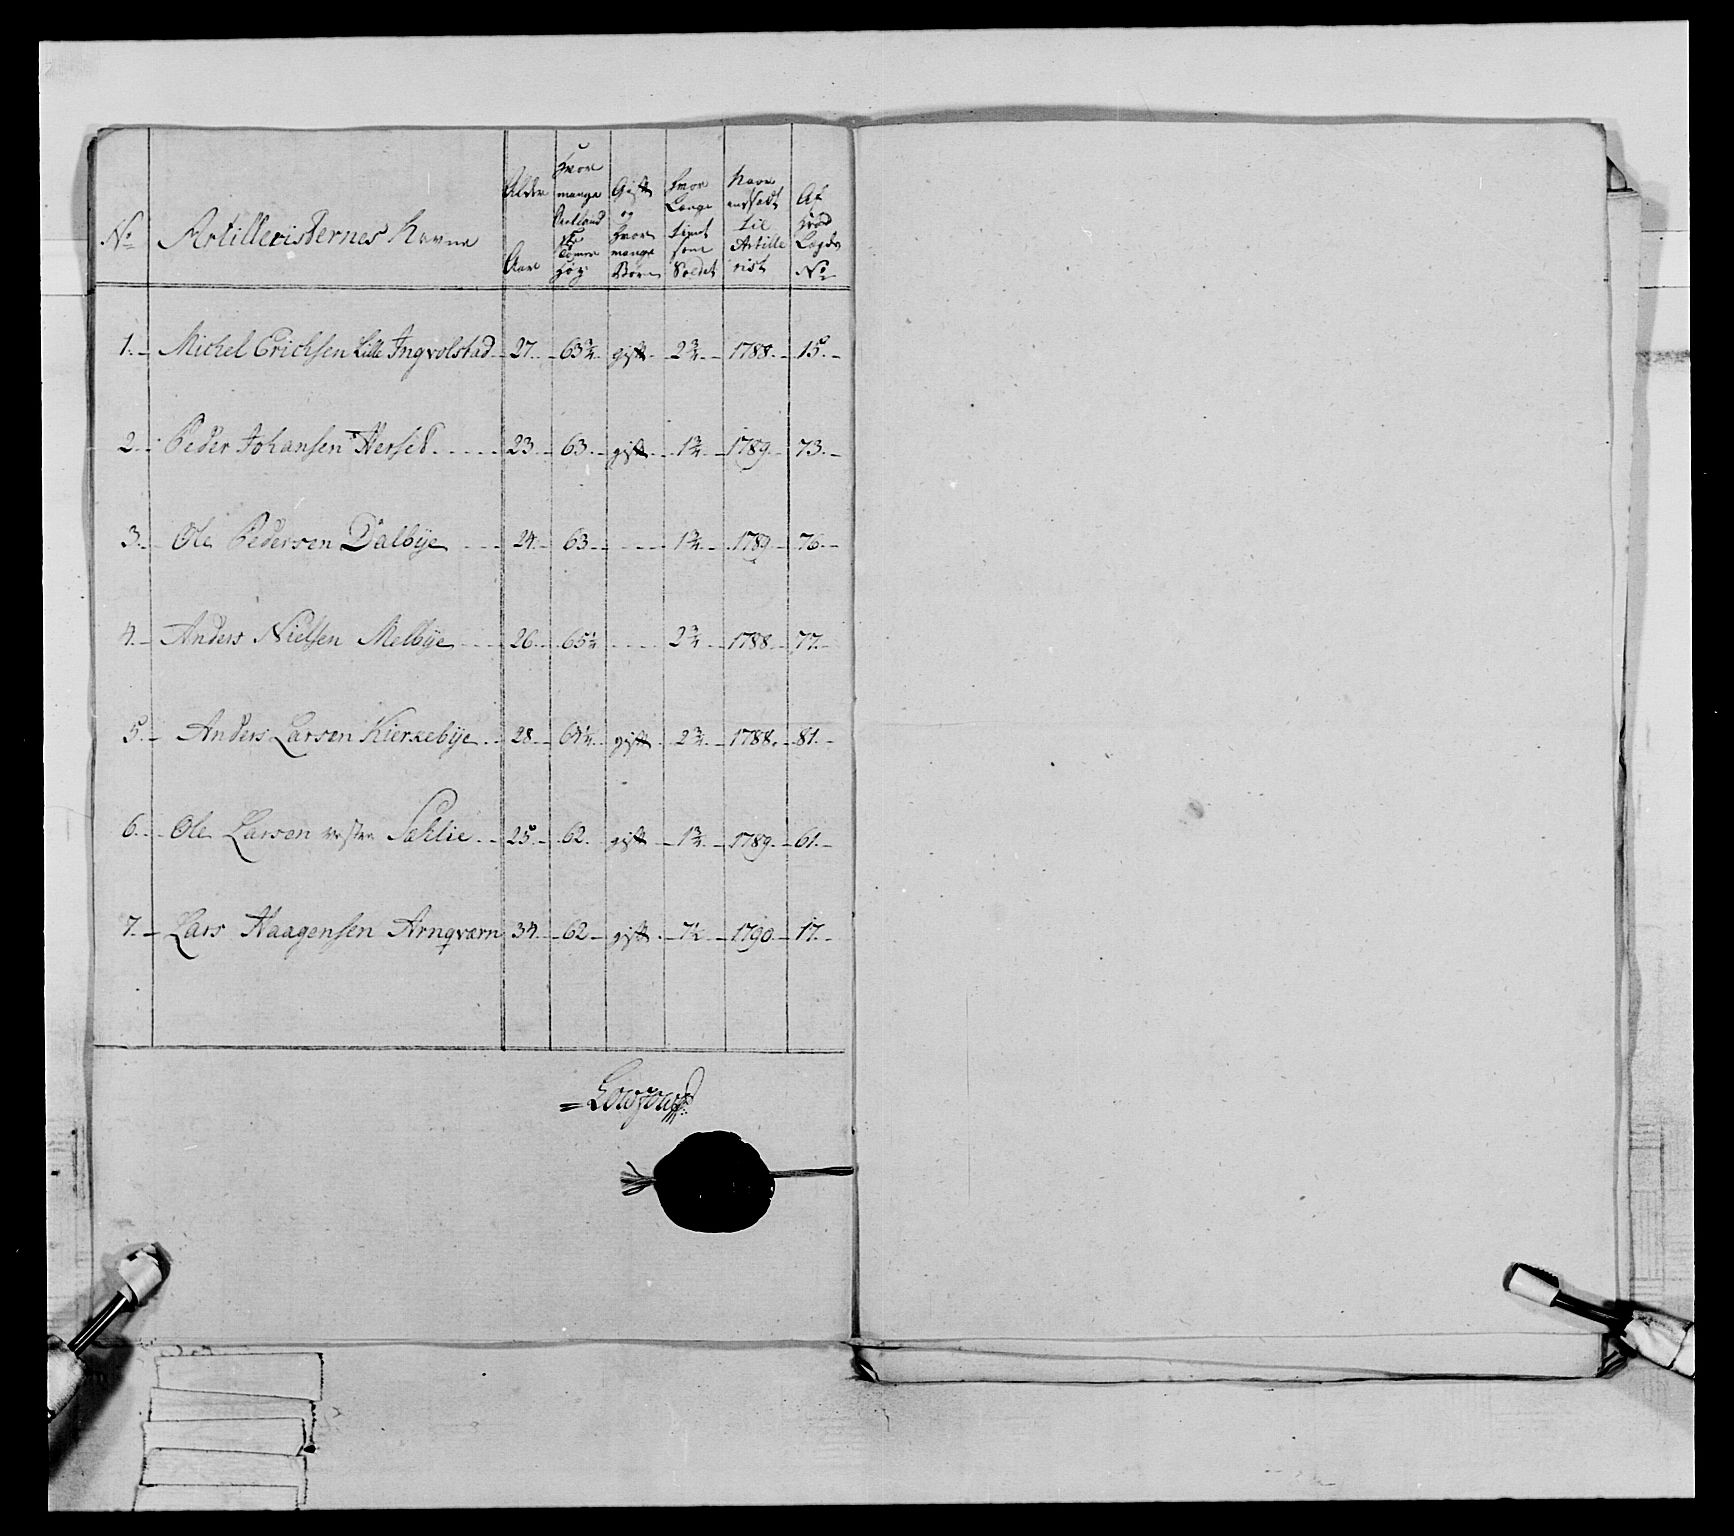 No
Artilleristernes Navne
Alder
Aar
Hvor
mange
Siællandske
Tomme
Høj
Gift
og
Hvor
mange
Børn
Hvor
Længe
tient
som
Soldat
Naar
ansadt
til
Artille
rist
Af
Hvad
Lægds
No
1. Michel Erichsen Lille Ingvolstad 27. 63 3/4 gift 2 3/4 1788. 15.
2. Peder Johansen Hersed 23. 63. gift 1 3/4 1789. 73.
3. Ole Pedersen Dalbÿe 24. 63 1 3/4 1789 76.
4. Anders Nielsen Melbÿe 26. 65 1/4 2 3/4 1788. 77.
5. Anders Larsen Kierkebÿe 28. gift 2 3/4 1788. 81.
6. Ole Larsen vestre Sahlie 25. 62. gift 1 3/4 1789. 61.
7. Lars Haagensen Arnqværn 34. 62 gift 1790. 17.